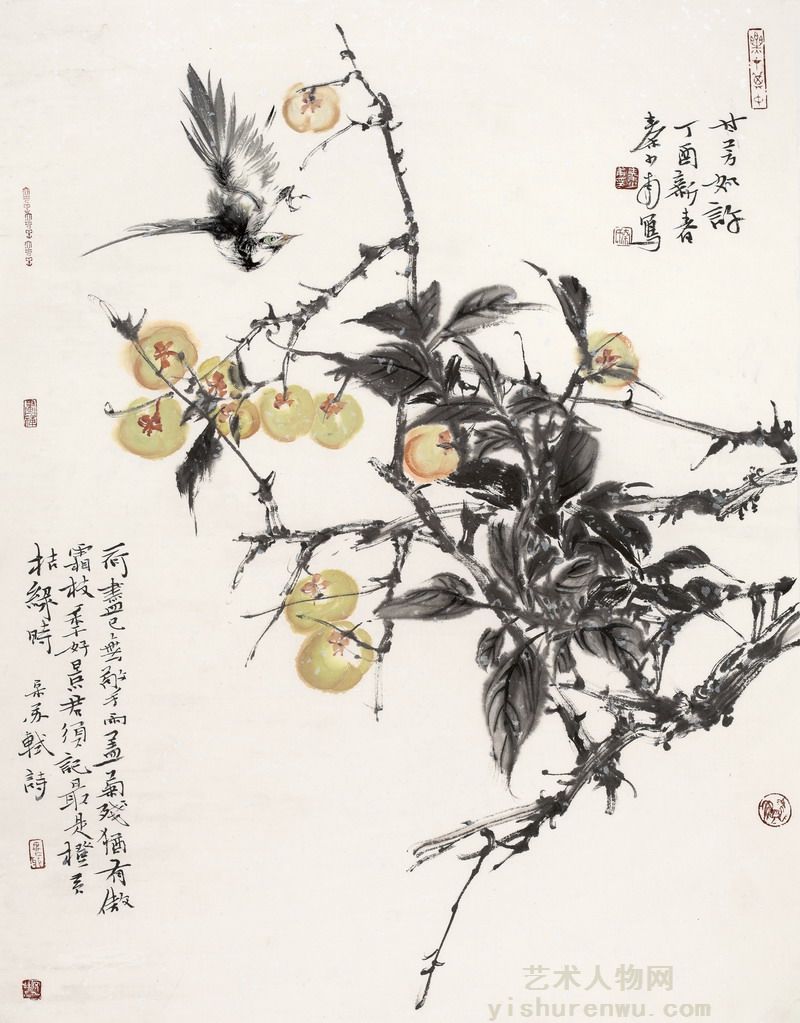 甘芳如許
丁酉新春
寫
荷盡已無擎雨盖菊殘猶有傲
霜枝一年好景君須記最是橙黄
桔綠時 宋苏軾詩
艺术人物网
yishurenwu.com